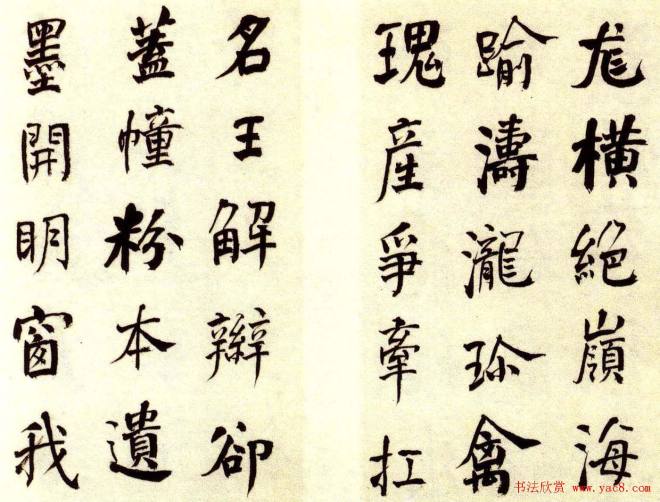 尨橫絕嶺海
踰濤瀧珎禽
瑰產爭牽扛
名王解辮卻
蓋幢粉本遺
墨開明窗我
书法欣赏 www.yac8.com